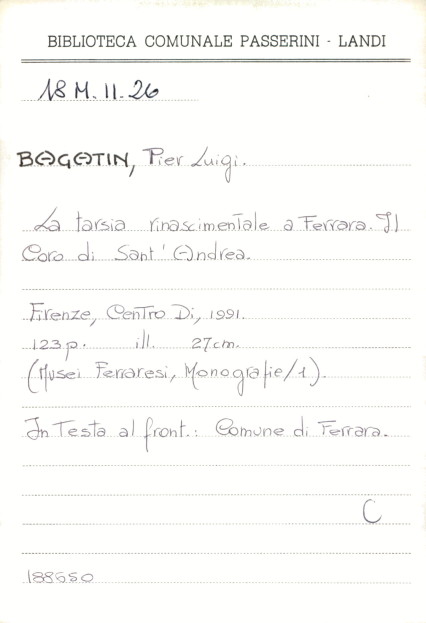 BIBLIOTECA COMUNALE PASSERINI - LANDI
18 M. II. 26
BAGATIN, Pier Luigi.
La tarsia rinascimentale a Ferrara. Il
Coro di Sant'Andrea.
Firenze, Centro Di, 1991.
123 p. ill. 27 cm.
(Musei Ferraresi, Monografie/1).
In Testa al front.: Comune di Ferrara.
C
188650